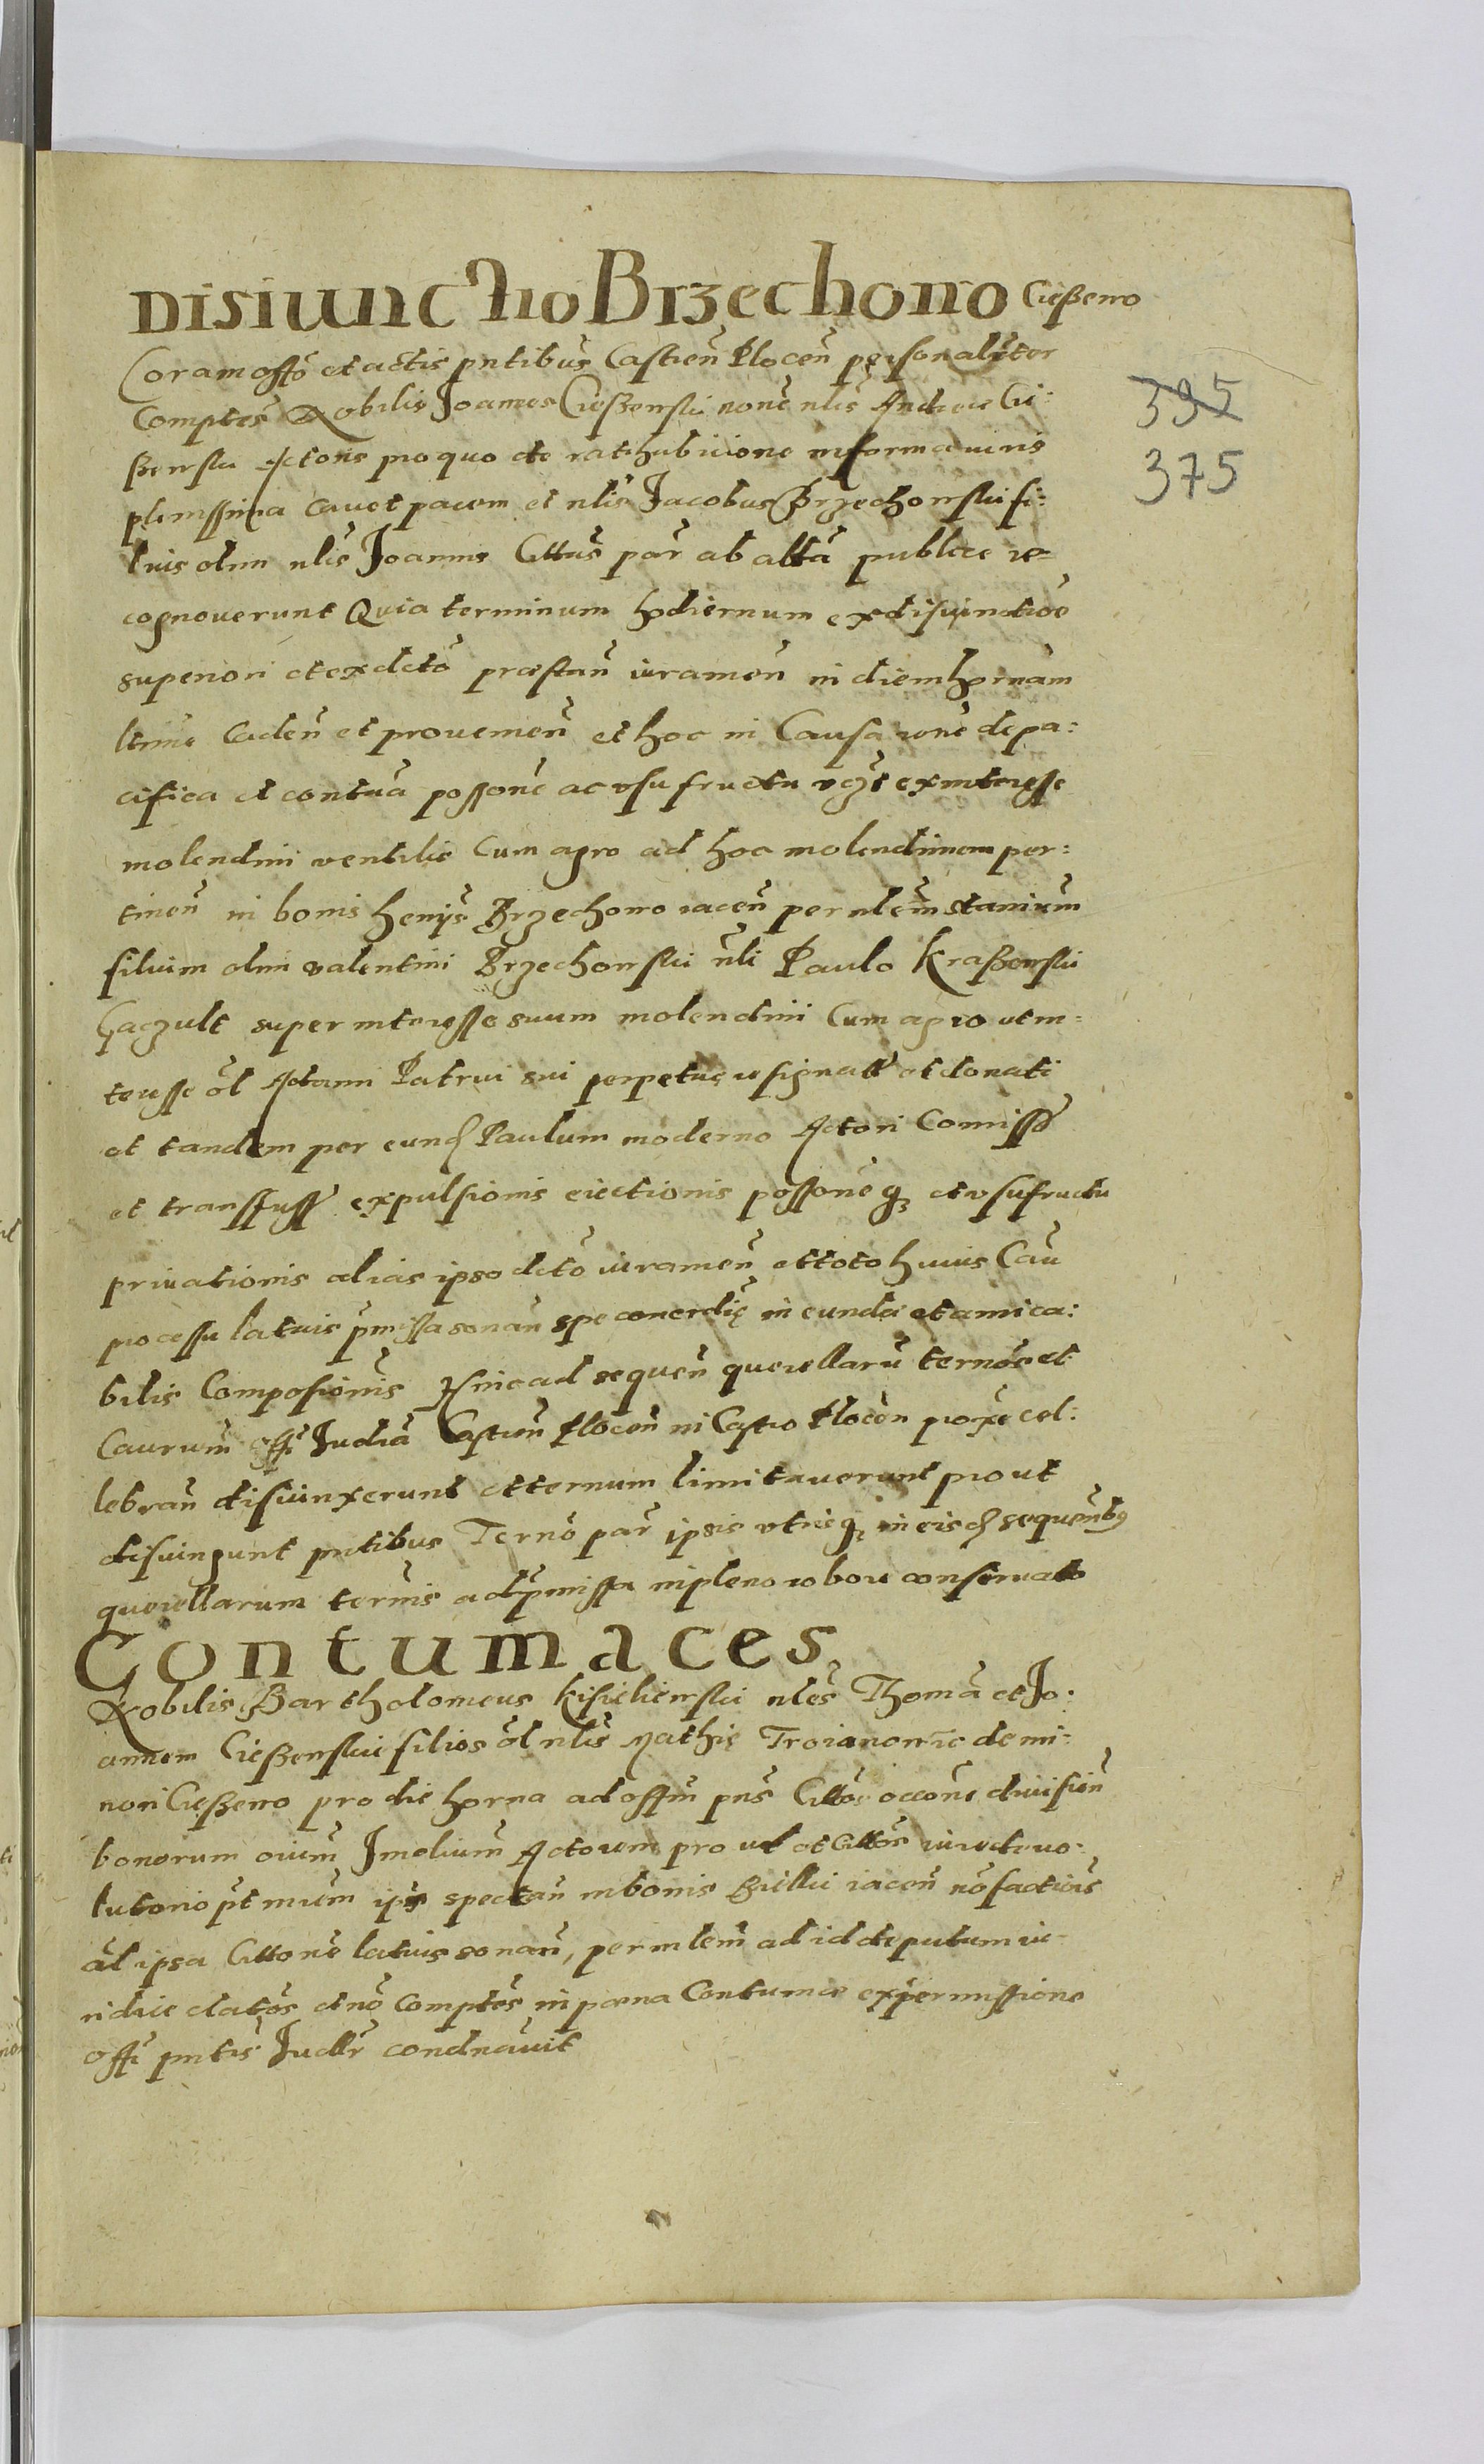 Disiunctio Brzechowo Cieszewo
Coram offo et actis pntibus Castren Plocen personaliter
Comptes Nobilis Joannes Cieszewski none nlis Andreae Cie:
szewski Actoris pro quo de rathabicione in forma iuris
plenissima cavet pacem et nlis Jacobus Brzechowski fi:
lius olim nlis Joannis Cittus par ab altā publice re=
cognoverunt Quia terminum hodiernum ex disiunctioe
superiori et ex dcto præstan iuramen in diem hornam
ltime caden et provenien et hoc in Causa rone de pa:
cifica et contua possone ac usufructu
molendini ventilis cum agro ad hoc molendinum per:
tinen in bonis henijs Brzechowo iacen per nlem Stanium
filium olim Valentini Brzechowski nli Paulo Kraszewski
Gaczult super interesse suum molendini cum agro ut in=
teresse ol Adami Patrui sui perpetue resignatt et donati
et tandem per eund Paulum moderno Actori Comisse
et transfuss expulsionis eiectionis possoneq et usufructu
privationis alias ipso dcto iuramen et toto huius Cau
processu latius pmissa sonan spe concordię in eunda et amica:
bilis Composionis Hinc ad sequen querellaru ternos et
Caurum offi Judia Castren Plocen in Castro Plocen proxe cel:
lebran disiunxerunt et ternum limitaverunt prout
disiungunt pntibus Terno par ipsis utrisq in eisd sequentibus
querellarum ternis ad pmissa in pleno robore conservato
Contumaces
Nobilis Bartholomeus Kisielewski nles Thomā et Jo:
annem Cieszewskie filios ol nlis Mathię Troianowic de mi:
nori Cieszewo pro die horna ad offm pns Cittos occone division
bonorum oium Imolium Actorem prout et Cittos iure devo:
lutorio pt mium ips spectan in bonis Bielski iacen no factois
al ipsa Cittone latius sonan, per mlem ad id deputum iu-
ridice clatos et no Comptes in pæna Contumae ex permissione
offi pntis Judlr condnavit
395
375